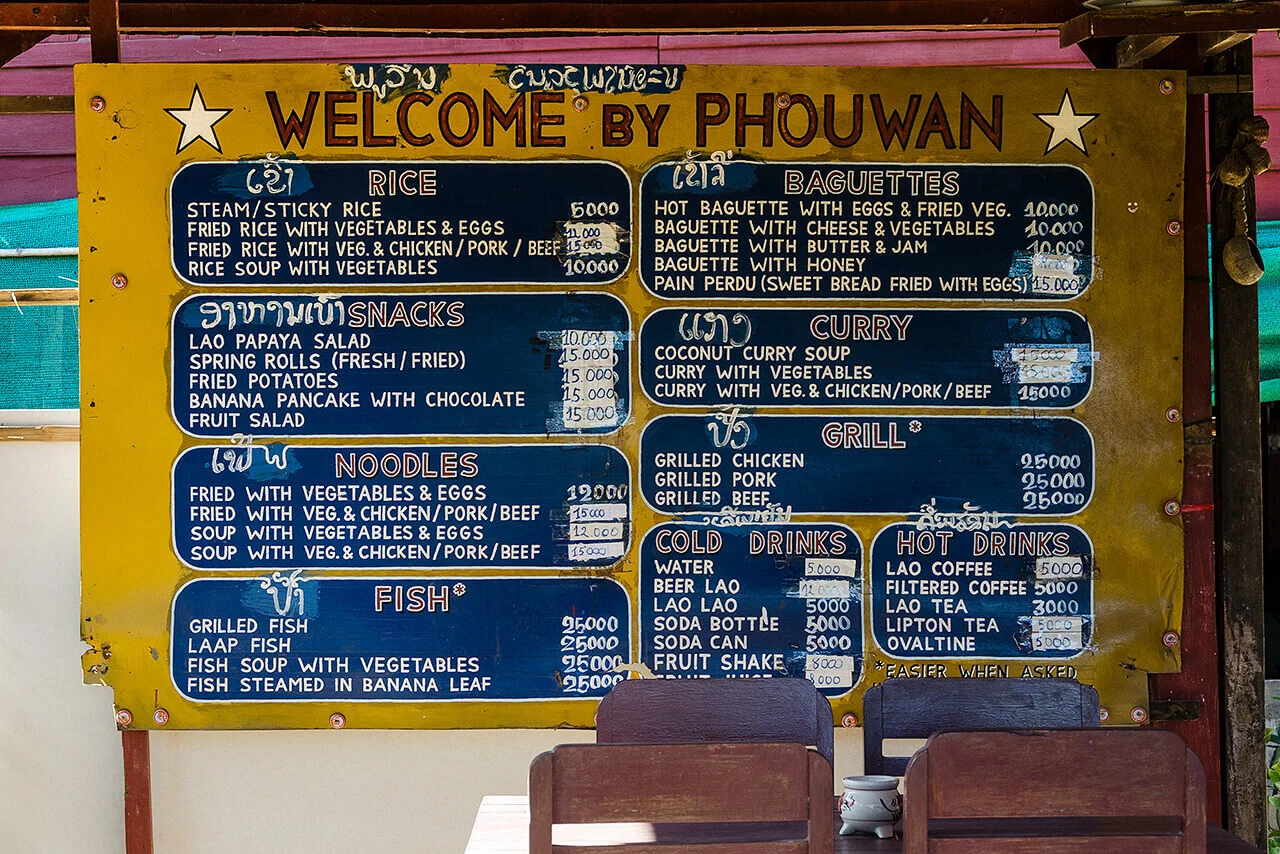 WELCOME BY PHOUWAN
ເຂົ້າ RICE
STEAM/STICKY RICE 5000
FRIED RICE WITH VEGETABLES & EGGS 11.000
FRIED RICE WITH VEG. & CHICKEN/PORK/BEEF 15000
RICE SOUP WITH VEGETABLES 10.000
SNACKS
LAO PAPAYA SALAD 10.000
SPRING ROLLS (FRESH/FRIED) 15.000
FRIED POTATOES 15.000
BANANA PANCAKE WITH CHOCOLATE 15.000
FRUIT SALAD 15.000
ເຝີ NOODLES
FRIED WITH VEGETABLES & EGGS 12000
FRIED WITH VEG. & CHICKEN/PORK/BEEF 15000
SOUP WITH VEGETABLES & EGGS 12.000
SOUP WITH VEG. & CHICKEN/PORK/BEEF 15000
FISH*
GRILLED FISH 25000
LAAP FISH 25000
FISH SOUP WITH VEGETABLES 25000
FISH STEAMED IN BANANA LEAF 25000
BAGUETTES
HOT BAGUETTE WITH EGGS & FRIED VEG. 10.000
BAGUETTE WITH CHEESE & VEGETABLES 10.000
BAGUETTE WITH BUTTER & JAM 10.000
BAGUETTE WITH HONEY
PAIN PERDU (SWEET BREAD FRIED WITH EGGS) 15.000
ແກງ CURRY
COCONUT CURRY SOUP 15000
CURRY WITH VEGETABLES 15000
CURRY WITH VEG. & CHICKEN/PORK/BEEF 15000
ປີ້ງ GRILL*
GRILLED CHICKEN 25000
GRILLED PORK 25000
GRILLED BEEF 25000
COLD DRINKS
WATER 5.000
BEER LAO 12000
LAO LAO 5000
SODA BOTTLE 5000
SODA CAN 5000
FRUIT SHAKE 8000
FRUIT JUICE 8.000
HOT DRINKS
LAO COFFEE 5000
FILTERED COFFEE 5000
LAO TEA 3000
LIPTON TEA 5000
OVALTINE 5000
*EASIER WHEN ASKED